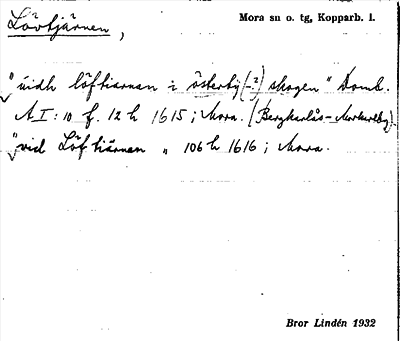 Lövtjärnen,
Mora sn o. tg, Kopparb. l.
"vidh löftiarnan i österby (-?) skogen" Domb.
A I: 10 f. 12 h 1615; Mora. (Bergkarlås-
"vid Löftiärnen „ 106 h 1616; Mora.
Bror Lindén 1932